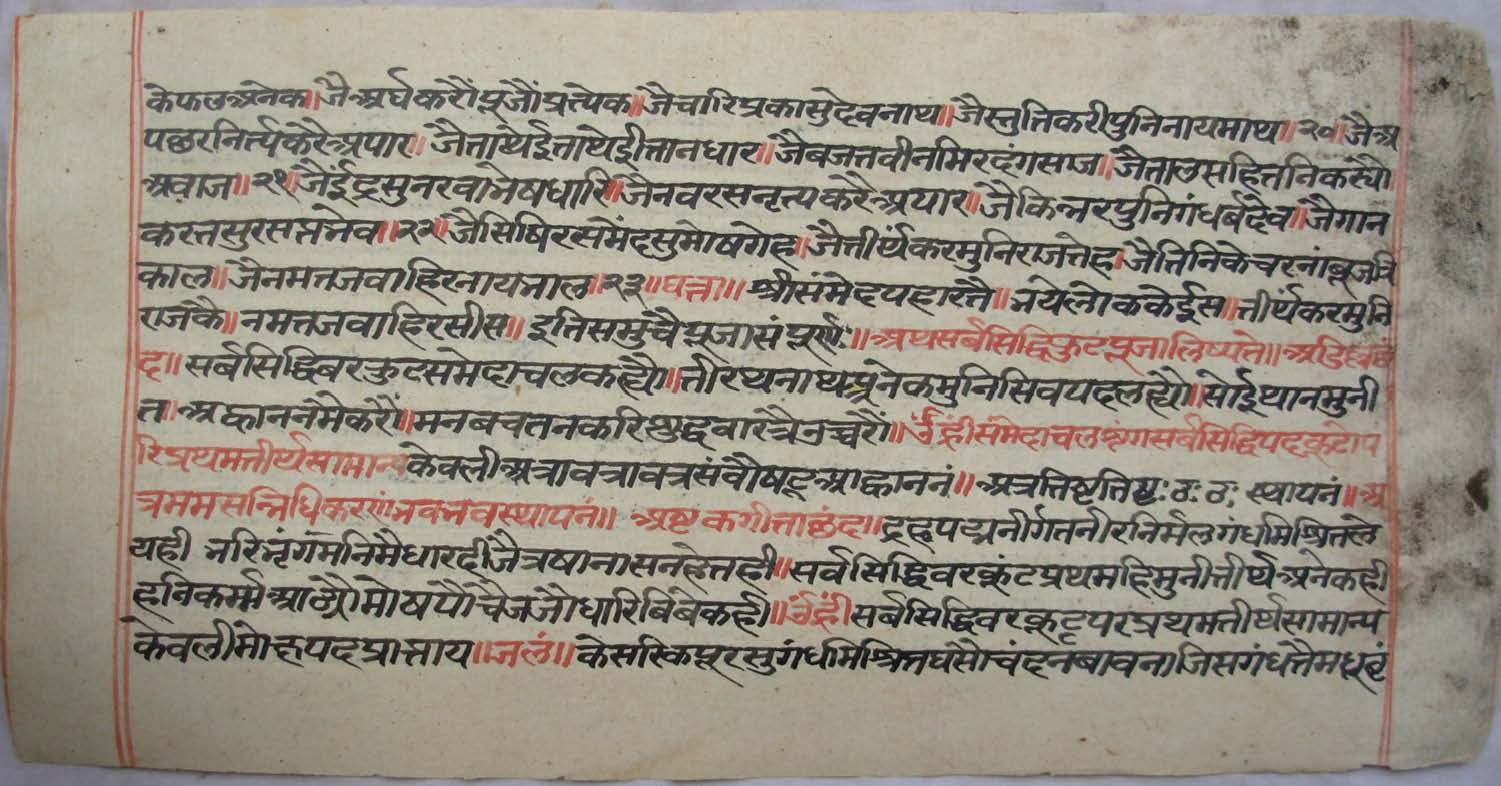 केफलअनेक॥जैअर्घकरौंपूजौंप्रत्येक॥जैचारिप्रकासुदेवनाथ॥जैस्तुतिकरीपुनिनायमाथ॥२०॥जैअ
पछरनिर्त्यकरैअपार॥जैताथेईताथेईतानधार॥जैबजतवीनमिरदंगसाज॥जैतालसहितनिकस्यौ
अवाज॥२१॥जैईद्रसुनरवाभेषधारि॥जैनवरसनृत्यकरैअपार॥जैकिन्नरपुनिगंधर्बदेव॥जैगान
करतसुरसप्तभेव॥२२॥जैसिषिरसंमेंदसुमोषगेह॥जैतीर्थंकरमुनिराजतेह॥जैतिनिकेचरनांबूजत्रि
काल॥जैनमतजवाहिरनायभाल॥२३॥घत्ता॥श्रीसंमेदपहारतै॥भयेलोककेईस॥तीर्थंकरमुनि
राजकै॥नमतजवाहिरसीस॥इतिसमुचैपूजासंपूर्णः॥अथसर्बसिद्धिकुटपूजालिष्यते॥अडिल्लछं
द॥सर्बसिद्धिबरकुटसमेदाचलकह्यौ॥तीरथनाथअनेकमुनिसिवपदलह्यौ॥सोईथानमुनी
त॥अह्वाननमैकरौं॥मनबचतनकरिशुद्धवारत्रैउच्चरौं॥ॐह्रींसंमेदाचलश्रृंगसर्बसिद्धिपदकूटोप
रिप्रथमतीर्थसामान्यकेवलीअत्रावत्रावत्रसंवौषट्आह्वाननं॥अत्रतिष्टतिष्टः ठः ठः स्थापनं॥अ
त्रममसन्निधिकरणंभवभवस्थापनं॥ अष्टकगीताछंद॥द्रहपद्मनीर्गतनीरनिर्मलगंधमिश्रितले
यही भरिभृंगमनिमैधारदीजैत्रषानासनहेतही॥सर्वसिद्धिवरकूंटप्रथमहिमुनीतीर्थअनेकही
हनिकर्मआठौंमोषपौंचैजजौधारिबिबेकही॥ॐह्रींसर्बसिद्धिवरकूटपरप्रथमतीर्थसामान्य
केवलीमोक्षपदप्राप्ताय॥जलं॥केसरिकपूरसुगंधमिश्रितघसौचंदनबावनाजिसगंधतैमधुबृं